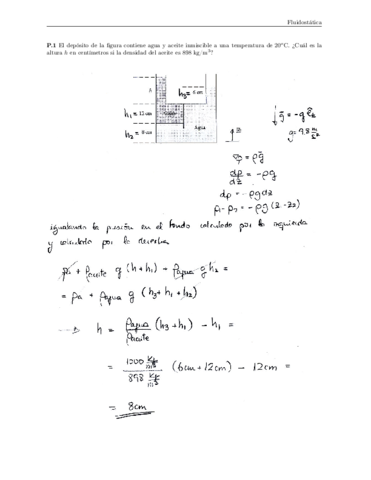 Fluidostática
P.1 El depósito de la figura contiene agua y aceite inmiscible a una temperatura de 20°C. ¿Cuál es la
altura h en centímetros si la densidad del aceite es 898 kg/m³?
h
h₃ = 6 cm
h₁ = 12 cm
h₂ = 8 cm
Agua
z
ḡ = -g ē_z
g = 9,8 m/s²
∇p = ρḡ
dp/dz = -ρg
dp = -ρgdz
p₁ - p₂ = -ρg (z - z₂)
igualando la presión en el fondo calculado por la izquierda
y calculado por la derecha
pa + ρaceite g (h + h₁) + ρagua g h₂ =
= pa + ρagua g (h₃ + h₁ + h₂)
h = ρagua/ρaceite (h₃ + h₁) - h₁ =
= 1000 kg/m³ / 898 kg/m³ (6cm + 12cm) - 12cm =
= 8cm